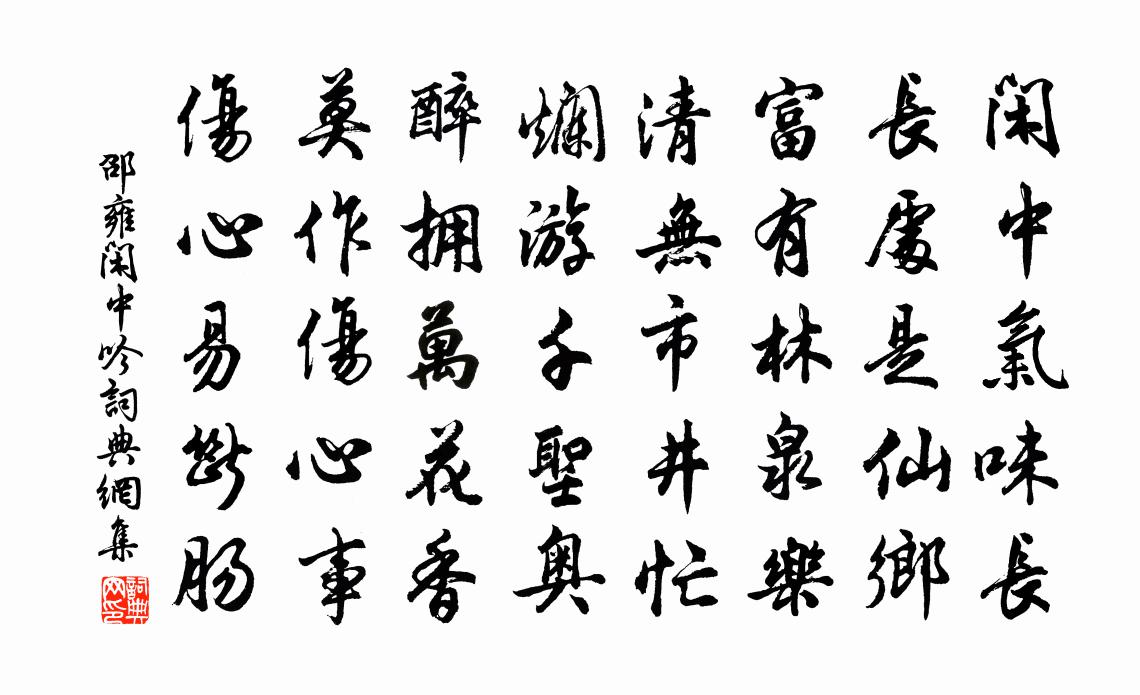 閑中氣味長
長處是仙鄉
富有林泉樂
清無市井忙
爛游千聖奧
醉拥萬花香
莫作傷心事
傷心易斷腸
邵雍閑中吟詞典網集
詞典